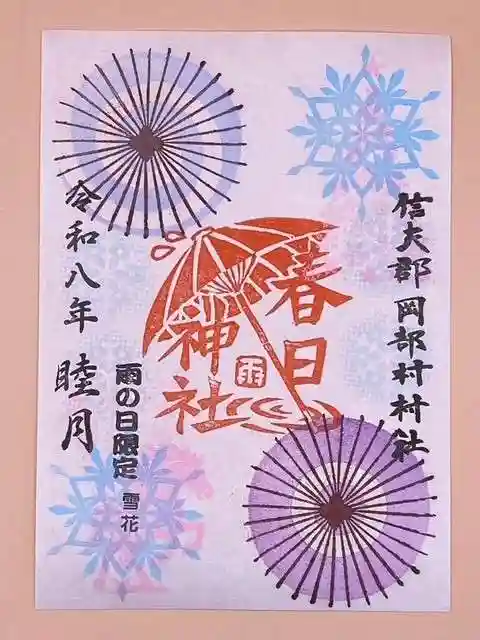 信夫郡岡部村村社
春日
神社
雨
令和八年
睦月
雨の日限定
雪花